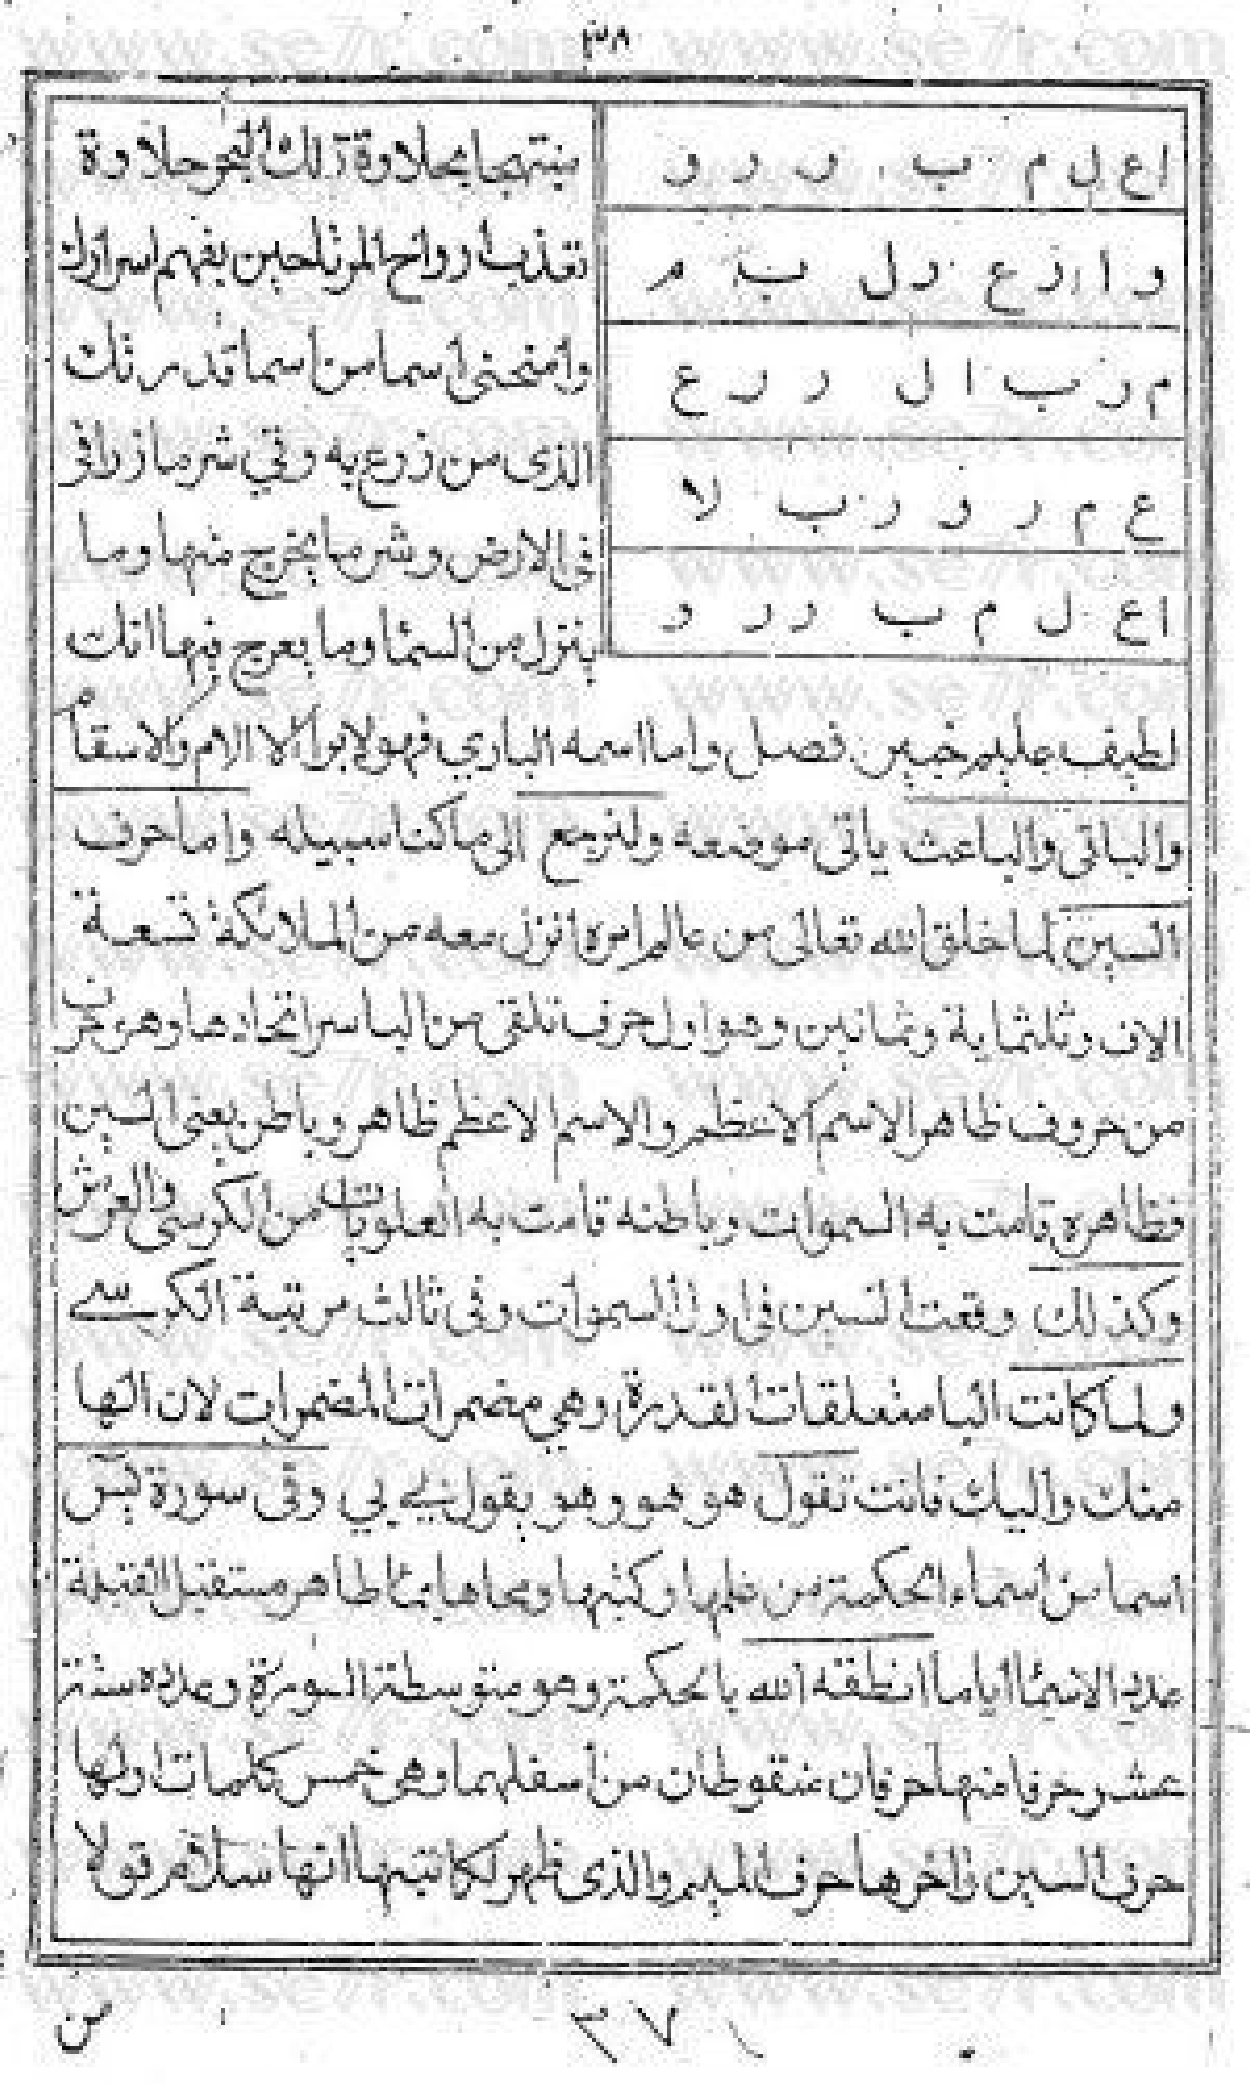 ٣٨
اعل م ب ر ر و
و ا ر ع ر ل ب م
م ر ب ا ل ر ر ع
ع م ر و ر ب لا
اع ل م ب ر ر و
مبتهجا بحلاوة ذلك البحر حلاوة
ارواح المرتاحين بفهم اسرارك
وامنحنى اسما من اسما قدرتك
الذى من زرع به وقي شر ما ذرا فى
فى الارض وشر ما يخرج منها وما
ينزل من السما وما يعرج فيها انك
لطيف عليم خبير فصل واما اسمه البارى فهو لابرا الالام والاسقام
والباقى والباعث ياتى موضعه ولنرجع الى ما كنا سبيله واما حرف
السين لما خلق الله تعالى من عالم امره انزل معه من الملائكة تسعة
الاف وثلثماية وثمانين وهو اول حرف تلقى من البا سر اتحادها وهو حرف
من حروف ظاهر الاسم الاعظم والاسم الاعظم ظاهر وباطن يعنى السين
فظاهره قامت به السموات وباطنه قامت به العلويات من الكرسى والعرش
وكذلك وقعت السين فى اول السموات وفى ثالث مرتبة الكرسى
ولما كانت البا متعلقات القدرة وهي مضمرات المضمرات لان الها
منك واليك فانت تقول هو هو وهو يقول بي بي وفى سورة يس
اسما من اسماء الحكمة من علمها وكتبها ومحاها بما طاهر مستقبل القبلة
عدد الاسما اياما انطقه الله بالحكمة وهو متوسطة السورة وعدده ستة
عشر حرفا منها حرفان منقوطان من اسفلهما وهى خمس كلمات اولها
حرف السين واخرها حرف الميم والذى ظهر لكاتبها انها سلام قولا
من
٣٧